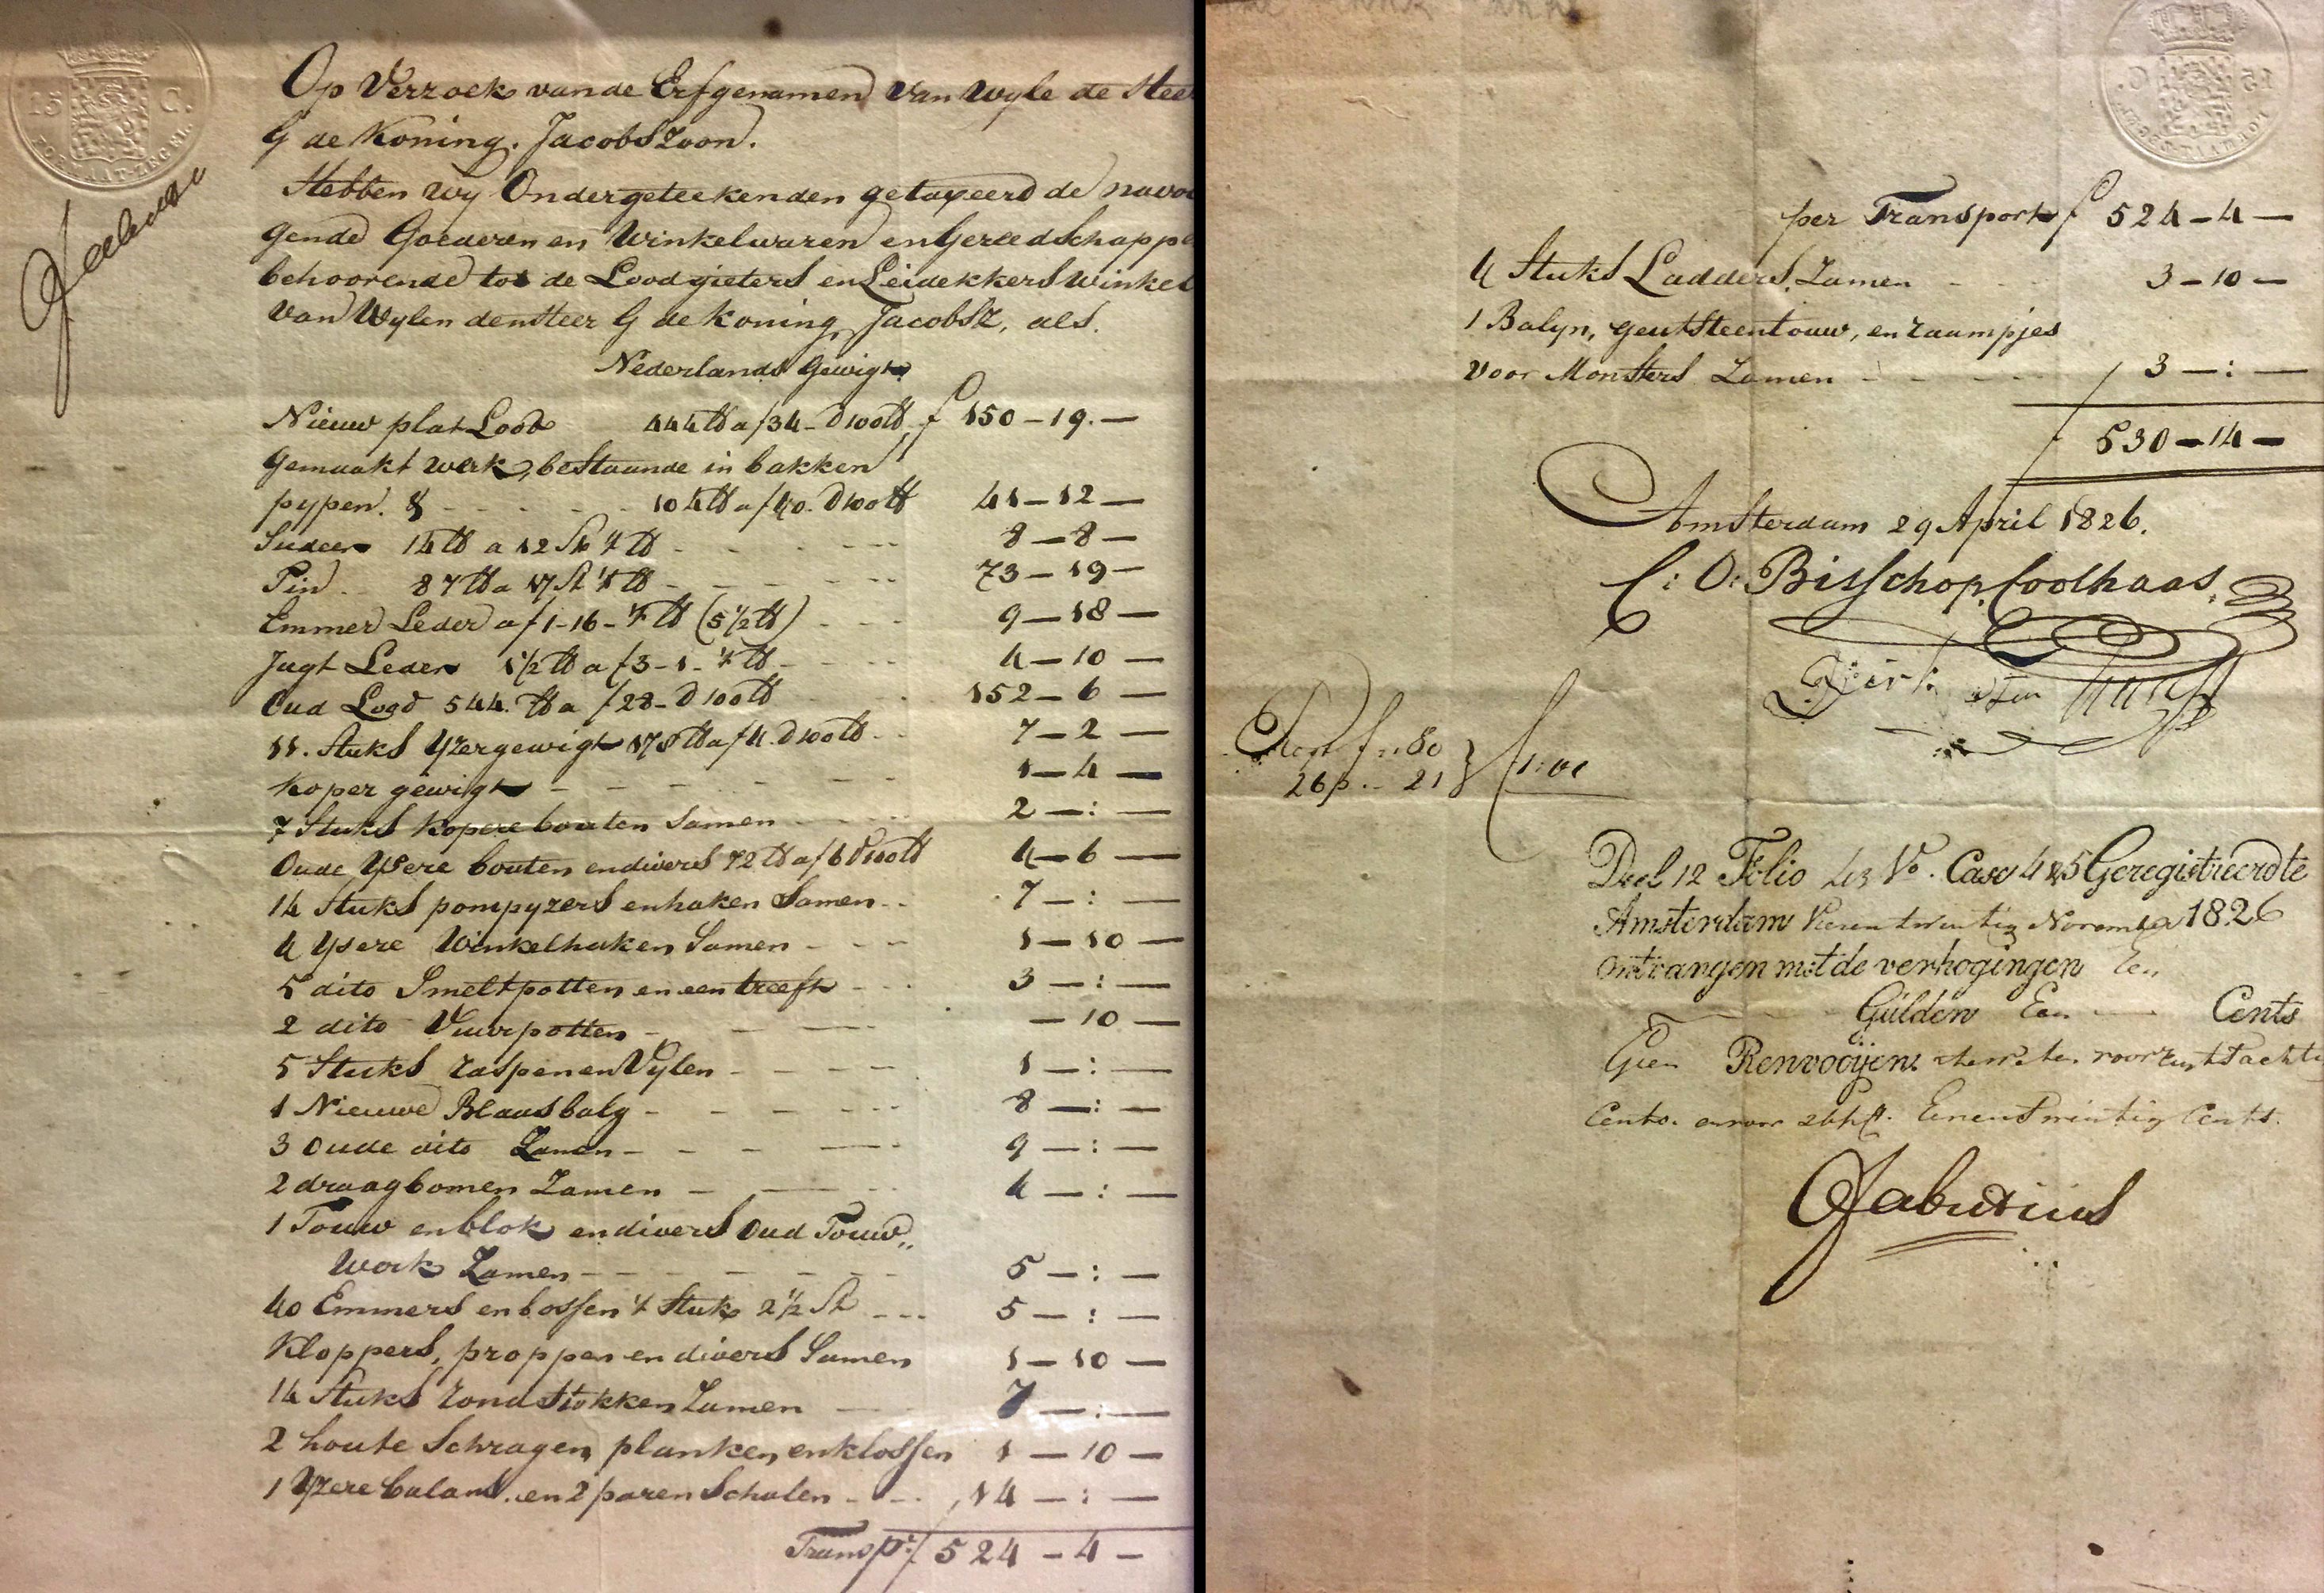 15 C.
Op Verzoek van de Erfgenamen van Wyle de Heer
G de Koning. Jacobszoon.
Hebben Wy Ondergeteekenden getaxeerd de navol
gende Goederen en Winkelwaren en Gereedschappe
behoorende tot de Loodgieters en Leidekkers Winkel
van Wylen den Heer G de Koning, Jacobsz, als.
Nederlands Gewigt
Nieuw plat Lood 444 ℔ a f 34 - d 100 ℔ f 150 - 19. —
Gemaakt werk, bestaande in bakken
pypen. & - - - 104 ℔ a f 40. d 100 ℔ 41 - 12 —
Sudeer 14 ℔ a 12 St ℔ 8 - 8 —
Tin. 87 ℔ a 17 St ℔ 73 - 19 —
Emmer Leder a f 1 - 16 - ℔ (5 1/2 ℔) 9 - 18 —
Jugt Leder 1 1/2 ℔ a f 3 - 1 - ℔ 4 - 10 —
Oud Lood 544. ℔ a f 28 - d 100 ℔ 152 - 6 —
11. Stuks Yzergewigt 178 ℔ a f 4. d 100 ℔ 7 - 2 —
Koper gewigt - - - 1 - 4 —
7 Stuks Kopere bouten Samen 2 - : —
Oude Ysere bouten en divers 72 ℔ a f 6 d 100 ℔ 4 - 6 —
14 Stuks pompyzers en haken Samen 7 - : —
4 Ysere Winkelhaken Samen - - - 1 - 10 —
5 dito Smeltpotten en een treeft 3 - : —
2 dito Vuurpotten - - - - 10 —
5 Stuks raspen en Vylen - - - 1 - : —
1 Nieuwe Blaasbalg - - - 8 - : —
3 Oude dito Zamen - - - 9 - : —
2 draagbomen Zamen - - 4 - : —
1 Touw en blok en divers Oud Touw„
Work Zamen - - - 5 - : —
40 Emmers en bossen Stuk 2 1/2 St 5 - : —
Kloppers, proppen en divers Samen 1 - 10 —
14 Stuks rondstokken Zamen 7 - : —
2 houte Schragen, planken en klossen 1 - 10 —
1 Yzere balans. en 2 paren Schalen 14 - : —
Transpt. f 524 - 4 —
15 C.
per Transport f 524 - 4 —
4 Stuks Ladders, Zamen - - 3 - 10 —
1 Balyn, geutsteentouw, en raampjes
voor Monsters Zamen - - - 3 - : —
f 530 - 14 —
Amsterdam 29 April 1826.
C: O: Bisschop Coolhaas.
Dirk
80
26 p. - 21
Deel 12 Folio Vo. Case 4 & 5 Geregistreerd te
Amsterdam Vierentwintig November 1826
Ontvangen met de verhogingen Een
Gulden Een — Cents
Geen Renvooijen voor
Cents. en voor 26 pCt. Eenentwintig Cents.